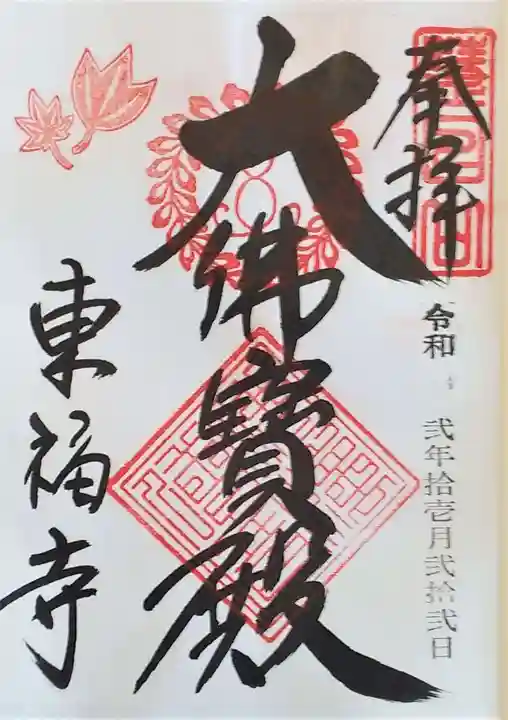 奉拝
令和 弐年拾壱月弐拾弐日
大佛寳殿
東福寺